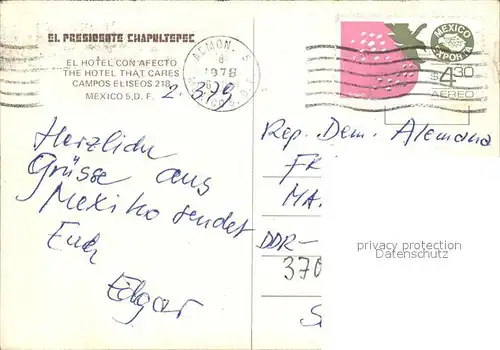 EL PRESIDENTE CHAPULTEPEC
EL HOTEL CON AFECTO
THE HOTEL THAT CARES
CAMPOS ELISEOS 218
MEXICO 5, D. F.
1978
MEXICO
EXPORTA
$4.30
AEREO
Herzliche
Grüsse aus
Mexiko sendet
Euch
Edgar
Rep. Dem. Alemana
FR
MA.
DDR-
370
privacy protection
Datenschutz